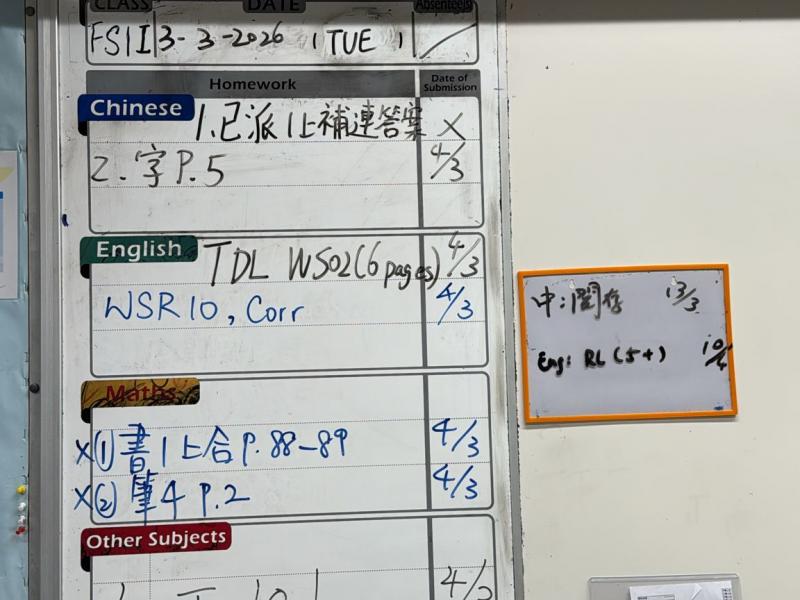 CLASS DATE Absentee(s)
FS1I 3-3-2026 (TUE)
Homework Date of Submission
Chinese
1.已派1上補連答案 X
2.字P.5 4/3
English
TDL WS02(6 pages) 4/3
WSR10, Corr 4/3
Maths
X①書1上合P.88-89 4/3
X②筆4 P.2 4/3
Other Subjects
4/3
中: 13/3
Eng: RL (5+) 10/4